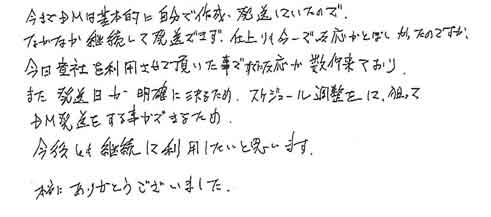 今までDMは基本的に自分で作成、発送していたので、
なかなか継続して発送できず、仕上りも今一で反応がとぼしかったのですが、
今回貴社を利用させて頂いた事で反応が数件来ており、
また発送日が明確に決るため、スケジュール調整をし、狙って
DM発送をする事ができるため
今後とも継続して利用したいと思います。
本当にありがとうございました。